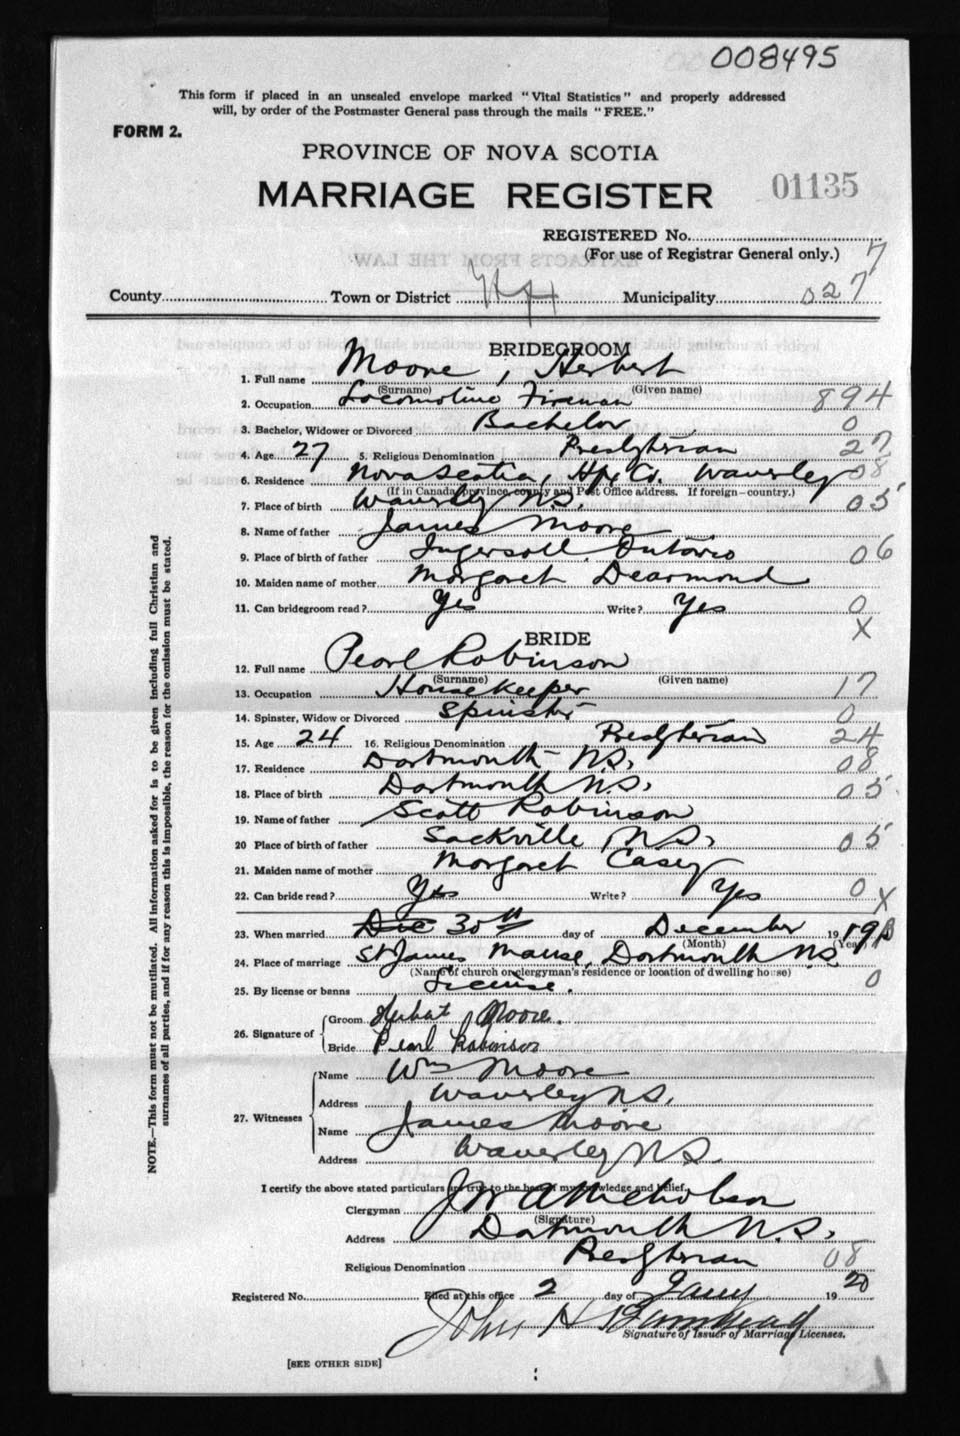 008495
This form if placed in an unsealed envelope marked "Vital Statistics" and properly addressed
will, by order of the Postmaster General pass through the mails "FREE."
FORM 2.
PROVINCE OF NOVA SCOTIA
MARRIAGE REGISTER 01135
REGISTERED No.
(For use of Registrar General only.) 7
County Town or District Hfx Municipality 027
BRIDEGROOM
1. Full name Moore, Herbert
(Surname) (Given name)
2. Occupation Locomotive Fireman 894
3. Bachelor, Widower or Divorced Bachelor 0
4. Age 27 5. Religious Denomination Presbyterian 27
6. Residence Nova Scotia, Hfx Co. Waverley 08
(If in Canada province, county and Post Office address. If foreign—country.)
7. Place of birth Waverley N.S. 05
8. Name of father James Moore
9. Place of birth of father Ingersoll, Ontario 06
10. Maiden name of mother Margaret Dearmond
11. Can bridegroom read? Yes Write? Yes 0
X
BRIDE
12. Full name Pearl Robinson
(Surname) (Given name)
13. Occupation Housekeeper 17
14. Spinster, Widow or Divorced Spinster 0
15. Age 24 16. Religious Denomination Presbyterian 24
17. Residence Dartmouth N.S. 08
18. Place of birth Dartmouth N.S. 05
19. Name of father Scott Robinson
20 Place of birth of father Sackville N.S. 05
21. Maiden name of mother Margaret Casey
22. Can bride read? Yes Write? Yes 0
X
23. When married Dec 30th day of December 19 19
(Month) (Year)
24. Place of marriage St James Manse, Dartmouth N.S.
(Name of church or clergyman's residence or location of dwelling house)
25. By license or banns License. 0
26. Signature of Groom Herbert Moore.
Bride Pearl Robinson
27. Witnesses Name Wm Moore
Address Waverley N.S.
Name James Moore
Address Waverley N.S.
I certify the above stated particulars are true to the best of my knowledge and belief.
Clergyman J W A Nicholson
(Signature)
Address Dartmouth N.S.
Religious Denomination Presbyterian 08
Registered No. Filed at this office 2 day of Jany 19 20
John H
Signature of Issuer of Marriage Licenses.
[SEE OTHER SIDE]
NOTE.—This form must not be mutilated. All information asked for is to be given including full Christian and
surnames of all parties, and if for any reason this is impossible, the reason for the omission must be stated.